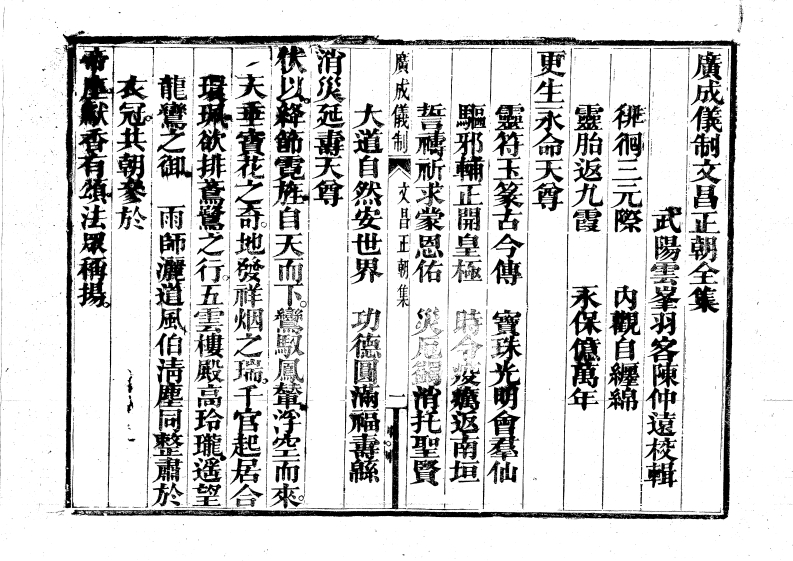 廣成儀制文昌正朝全集
武陽雲峯羽客陳仲遠校輯
徘徊三元際　內觀自纏綿
靈胎返九霞　永保億萬年
更生永命天尊
靈符玉篆古今傳　寶珠光明會羣仙
驅邪輔正開皇極　時令癘返南垣
誓禱祈求蒙恩佑　災厄消托聖賢
廣成儀制　文昌正朝集　一
大道自然安世界　功德圓滿福壽緜
消災延壽天尊
伏以絳節霓旌自天而下。鸞馭鳳輦浮空而來。
天垂寶花之奇。地發祥烟之瑞。千官起居合
環珮欲排鵉鷺之行。五雲樓殿高玲瓏。遙望
龍鸞之御　雨師灑道風伯清塵同整肅於
衣冠。共朝參於
帝座獻香有頌法眾稱揚。